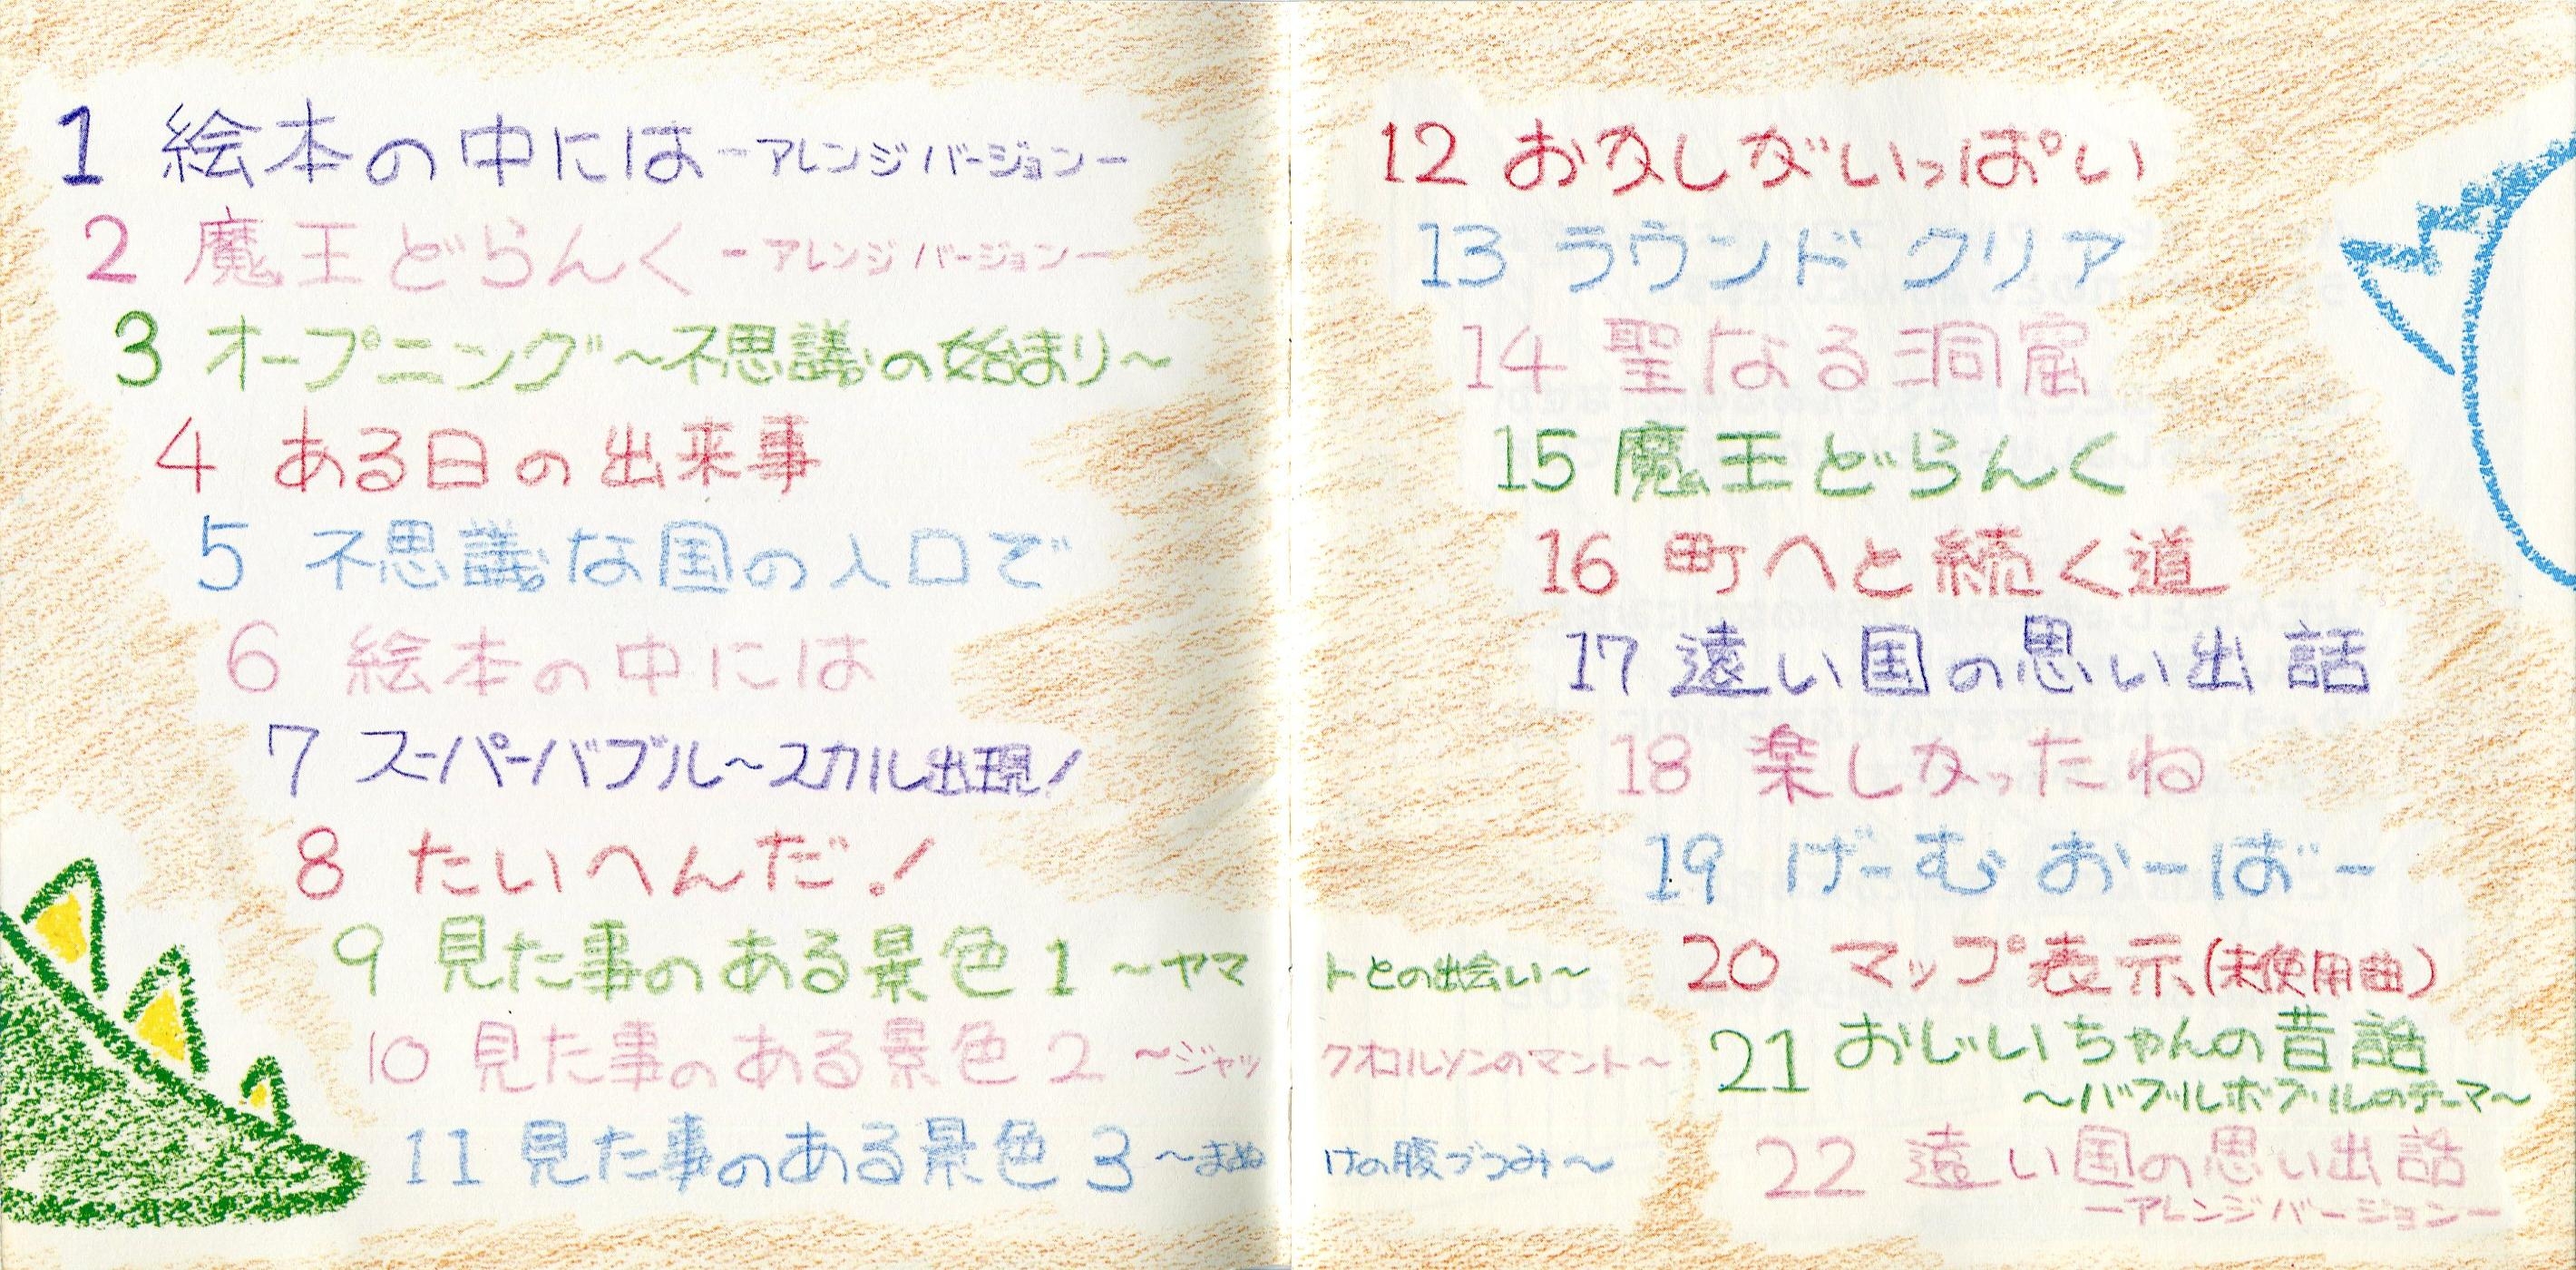 1 絵本の中には-アレンジバージョン-
2 魔王どらんく-アレンジバージョン-
3 オープニング～不思議の始まり～
4 ある日の出来事
5 不思議な国の入口で
6 絵本の中には
7 スーパーバブル～スカル出現!
8 たいへんだ!
9 見た事のある景色1～ヤマトとの出会い～
10 見た事のある景色2～ジャックオコルソンのマント～
11 見た事のある景色3～まぬけの腹づつみ～
12 おかしがいっぱい
13 ラウンドクリア
14 聖なる洞窟
15 魔王どらんく
16 町へと続く道
17 遠い国の思い出話
18 楽しかったね
19 げーむおーばー
20 マップ表示(未使用曲)
21 おじいちゃんの昔話
～バブルボブルのテーマ～
22 遠い国の思い出話
-アレンジバージョン-